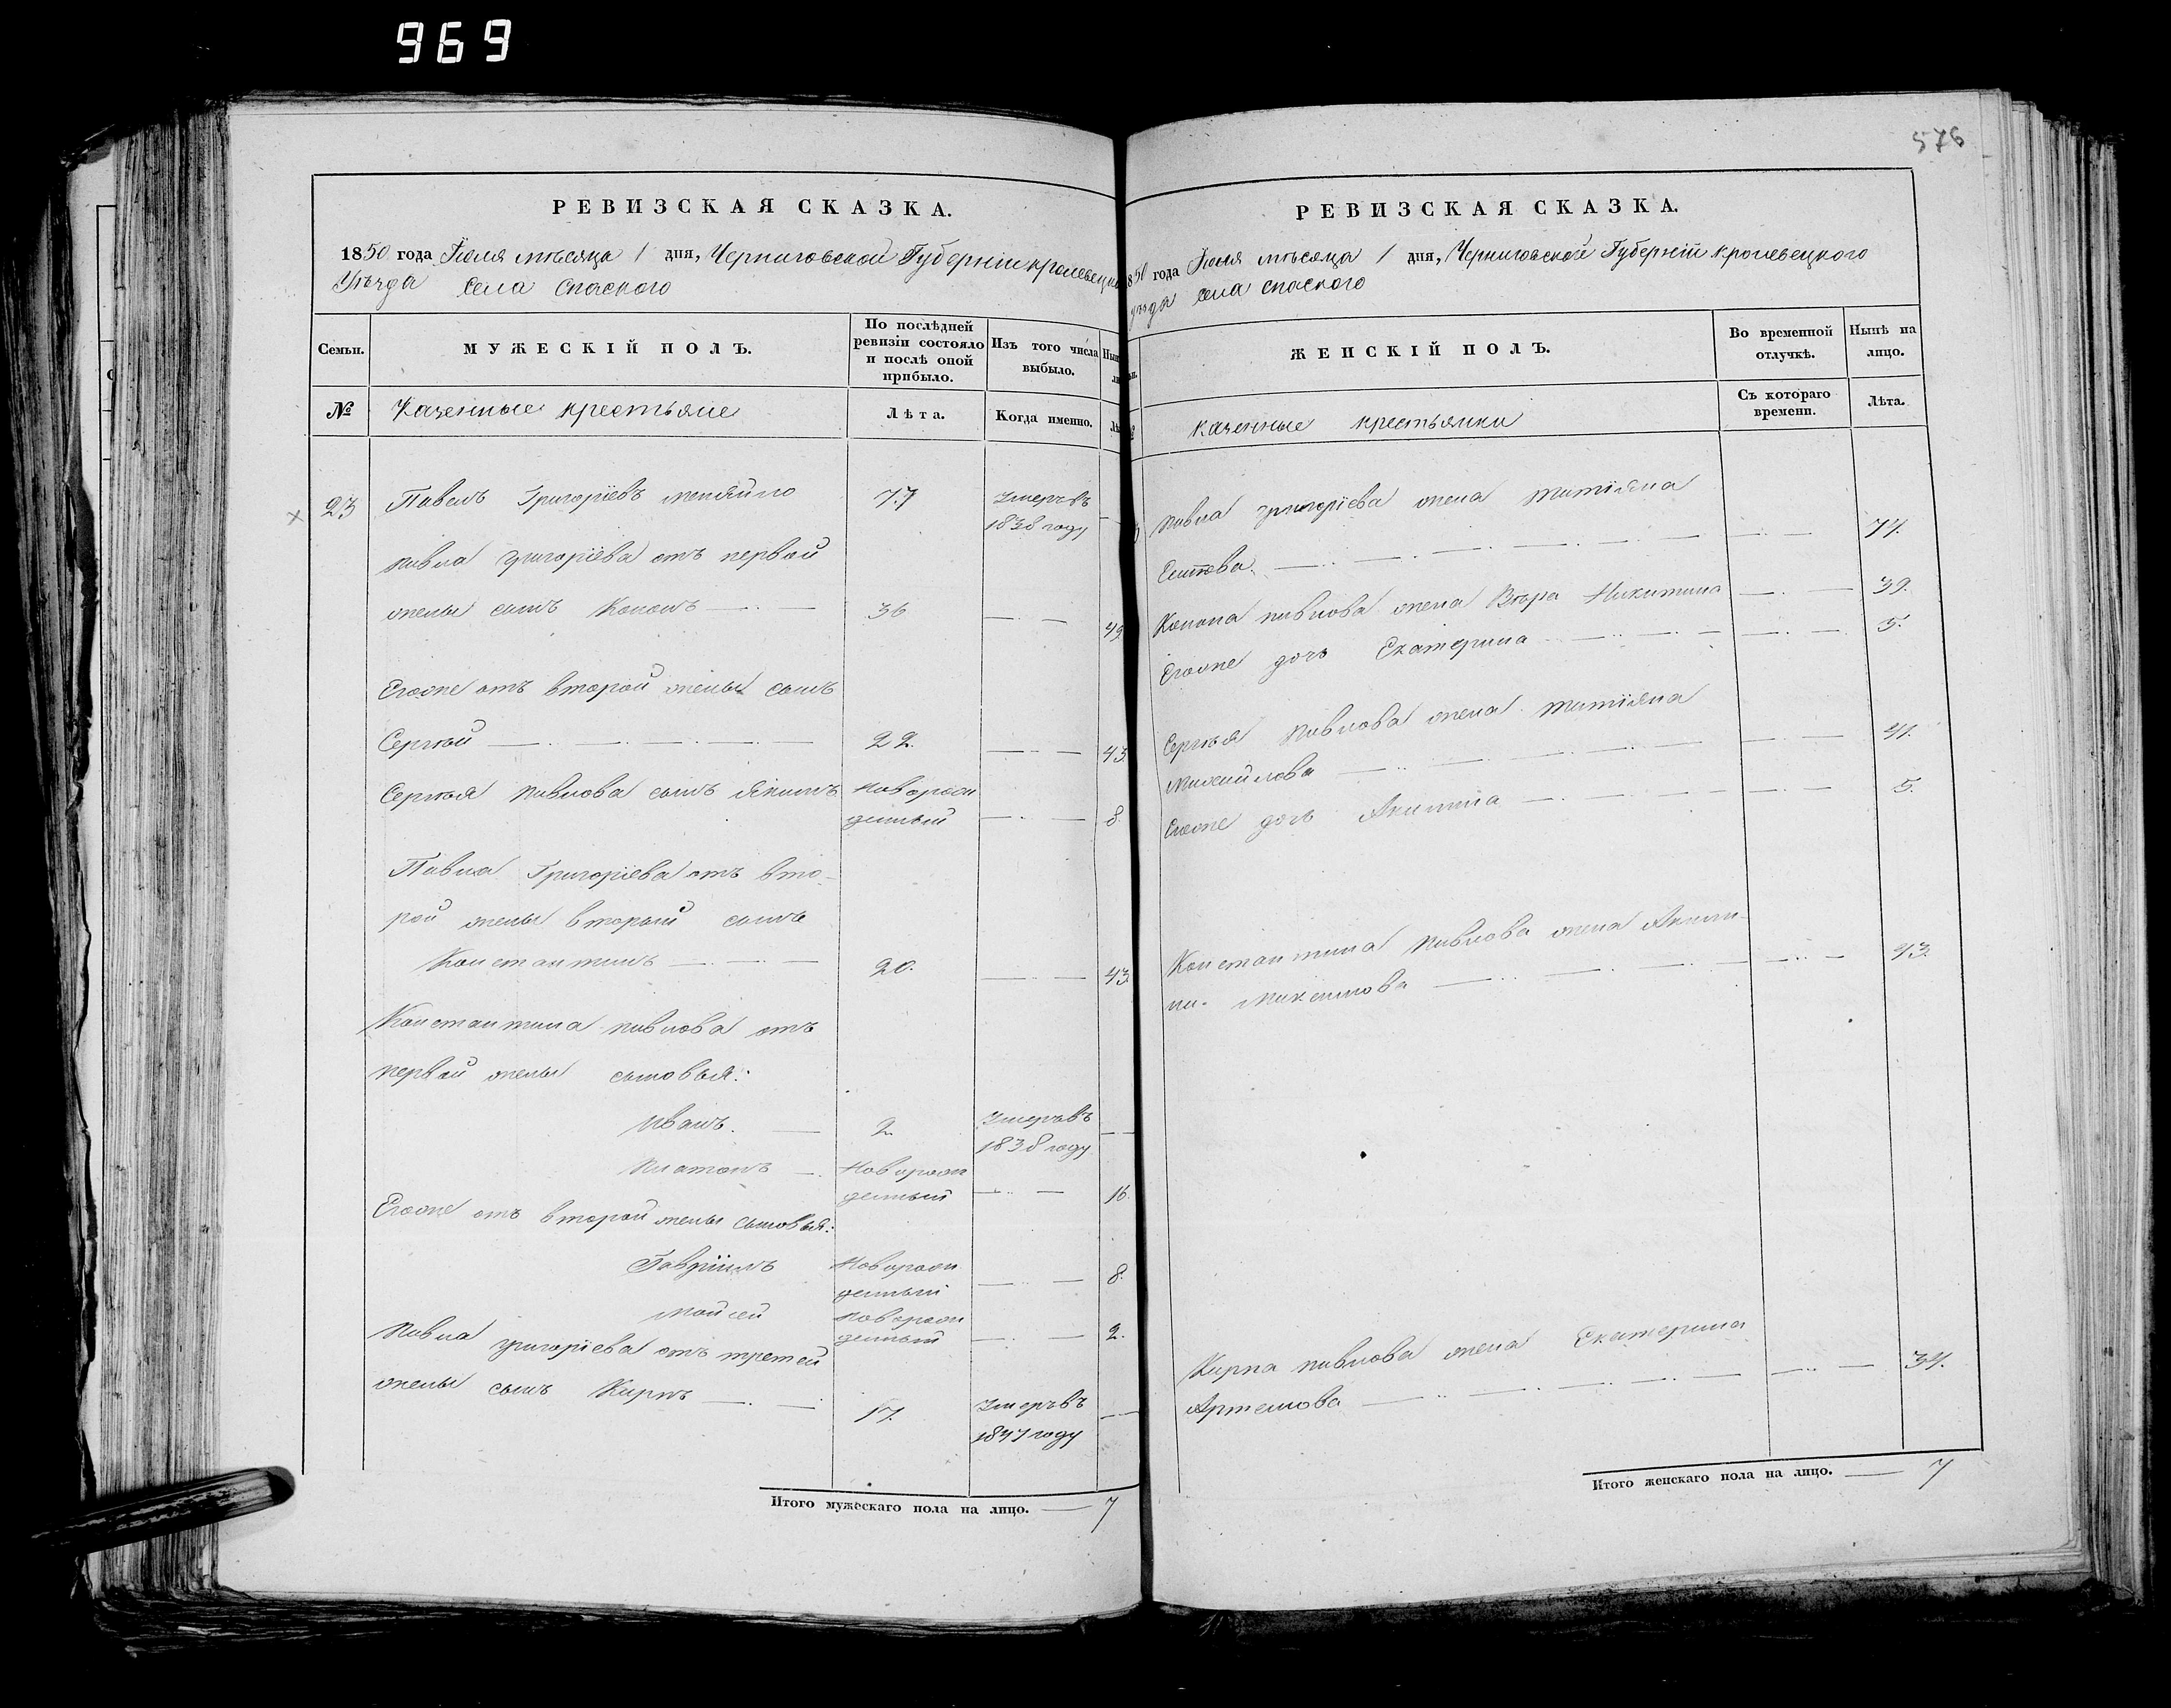 969
576
РЕВИЗСКАЯ СКАЗКА.
1850 года Іюля мѣсяца 1 дня, Черниговской Губерніи кролевец
Уѣзда Села Спаского
Семьи.
МУЖЕСКІЙ ПОЛЪ.
По послѣдней ревизіи состояло и послѣ оной прибыло.
Изъ того числа выбыло.
№
Казенные крестьяне
Лѣта.
Когда именно.
23 Павелъ Григоріевъ 77 Умеръ въ
1838 году
павла григоріева отъ первой
жены сынъ Кононъ 36 49
Егоже отъ второй жены сынъ
Сергѣй 22. 43
Сергѣя павлова сынъ ЯкимъНоворож
денный 8
Павла Григоріева отъ вто-
рой жены вторый сынъ
Константинъ 20. 43
Константина павлова отъ
первой жены сыновья:
Иванъ. 2 Умеръ въ
1838 году
платонъ Новорож
денный 16
Егоже отъ второй жены сыновья:
Гавріилъ Новорож
денный 8.
Мойсей новорож
денный 2.
Павла григоріева отъ третей
жены сынъ Кирпъ 17. Умеръ въ
1847 году
Итого мужескаго пола на лицо. 7
РЕВИЗСКАЯ СКАЗКА.
1850 года Іюля мѣсяца 1 дня, Черниговской Губерніи кролевецкого
уѣзда села спаского
ЖЕНСКІЙ ПОЛЪ.
Во временной отлучкѣ.
Нынѣ на лицо.
казенные крестьянки
Съ котораго времени.
Лѣта.
павла григоріева жена татіяна
74.
Конона павлова жена Вѣра Никитина 39.
Егоже дочь Екатерина 5.
Сергѣя павлова жена татіяна
Михайлова 41.
Егоже дочь Акилина 5.
Константина павлова жена Акили-
на Максимова 43.
Кирпа павлова жена Екатерина
Артемова 34.
Итого женскаго пола на лицо. 7